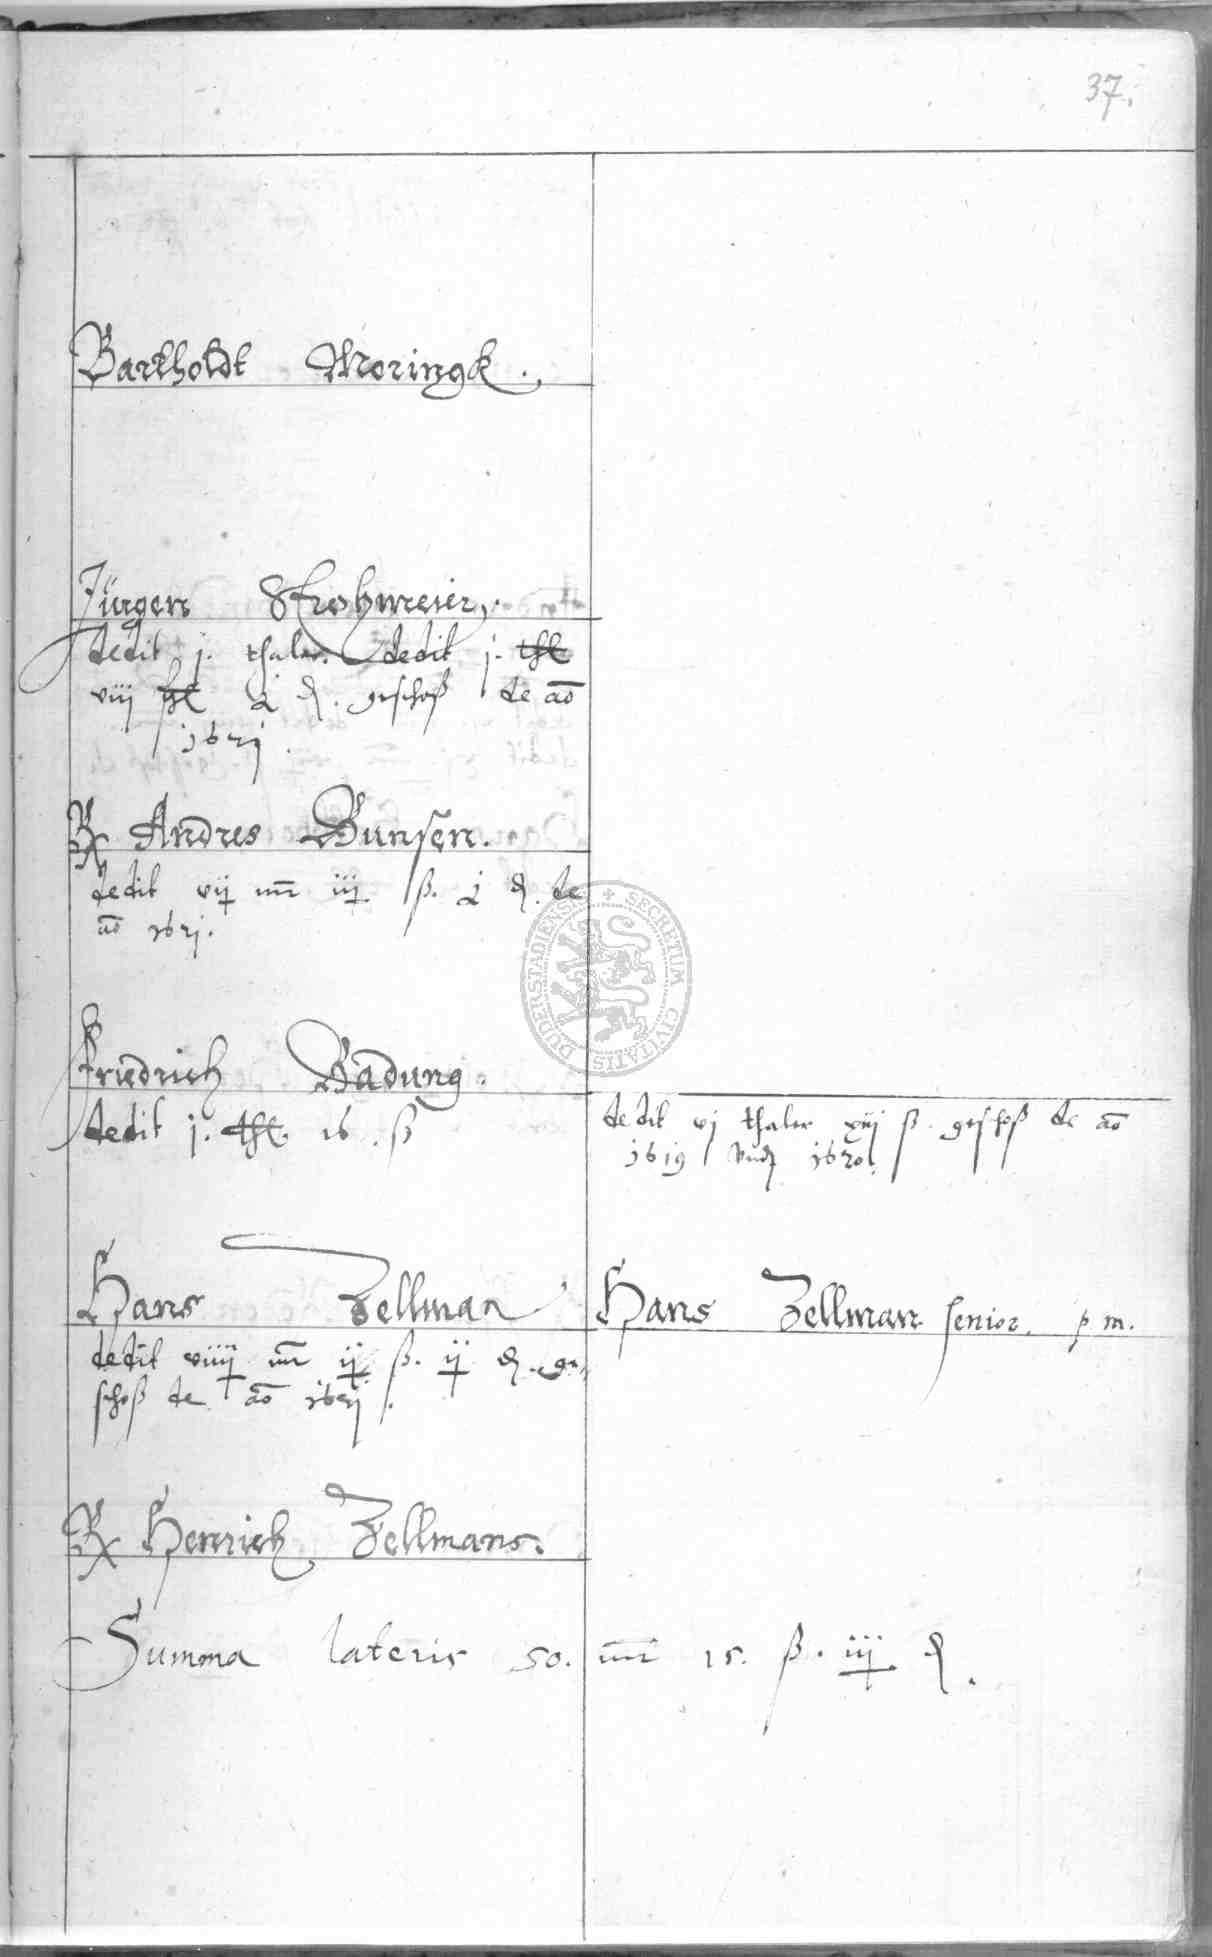 37.
Bartholdt Moringk.
Jürgen Strohmeier.
dedit j. thaler. dedit j. thl
viij ßl ½ ₰. geschoß de ao
1621.
Rx Andres Bunsen.
dedit vij mr iij ß. ½ ₰. de
ao 1621.
Friedrich Badung.
dedit j. thl. 16. ß
dedit vj thaler xiij ß. geschoß de ao
1619 vnd 1620.
Hans Zellman
dedit viiij mr ij ß. ij ₰. ge-
schoß de ao 1621.
Hans Zellman senior. p m.
Rx Henrich Zellmans.
Summa lateris 50. mr 15. ß. iij ₰.
SECRETUM CIVITATIS DUDERSTADIENSIS